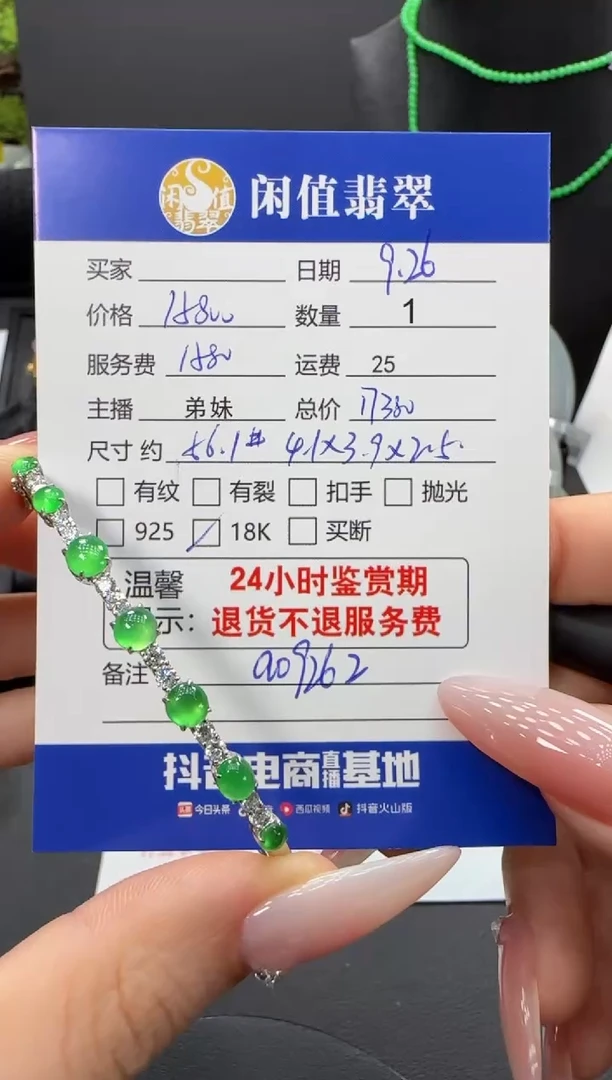 闲值翡翠
闲值翡翠
买家 日期 9.26
价格 15800 数量 1
服务费 1580 运费 25
主播 弟妹 总价 17380
尺寸 约 56.1# 4.1×3.9×2.5
有纹 有裂 扣手 抛光
925 18K 买断
温馨 24小时鉴赏期
示: 退货不退服务费
备注 a09262
抖音电商直播基地
今日头条 西瓜视频 抖音火山版